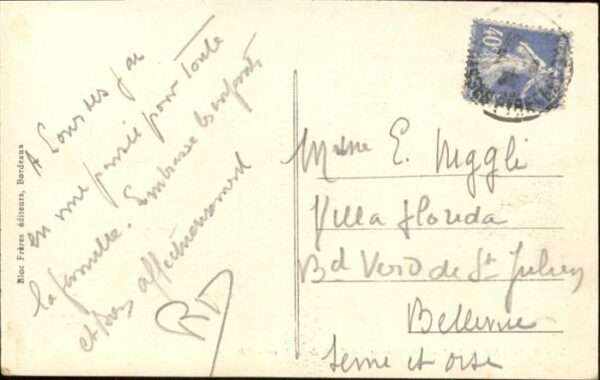 A Lourdes j'ai
eu une pensée pour toute
la famille. Embrasse les enfants
et affectueusement
RD
Bloc Frères éditeurs, Bordeaux
40c
Mme E. Neggli
Villa Florida
Bd Verd de St Julien
Bellevue
Seine et Oise